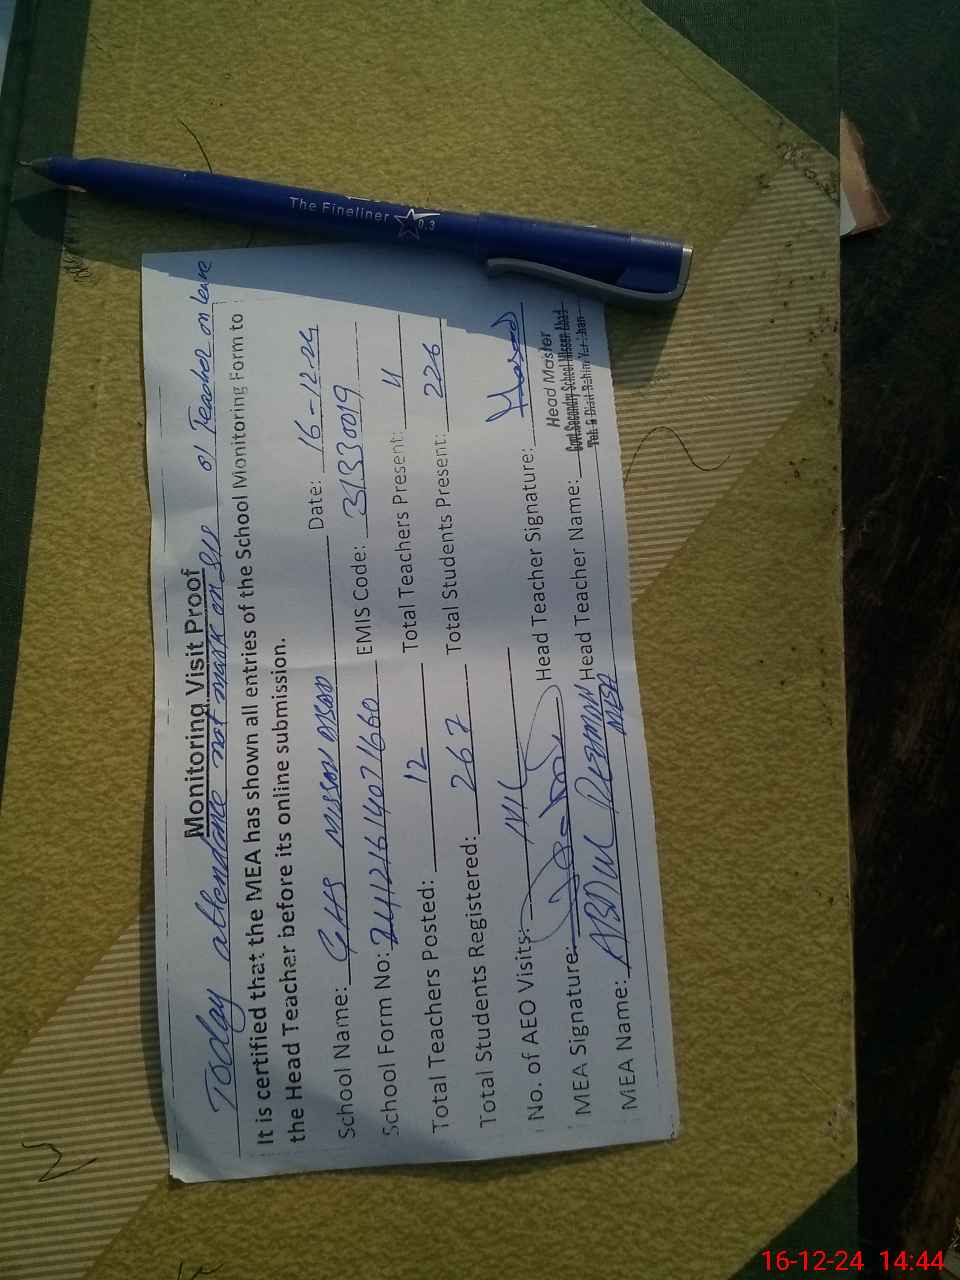 The Fineliner 0.3
Monitoring Visit Proof
Today attendance not mark on SIS 01 Teacher on leave
It is certified that the MEA has shown all entries of the School Monitoring Form to
the Head Teacher before its online submission.
School Name: GHS Date: 16-12-24
School Form No: EMIS Code: 31330019
Total Teachers Posted: 12 Total Teachers Present:
Total Students Registered: 267 Total Students Present: 226
No. of AEO Visits: NIL Head Teacher Signature:
MEA Signature: Head Teacher Name:
MEA Name: ABDUL REHMAN
Head Master
16-12-24 14:44